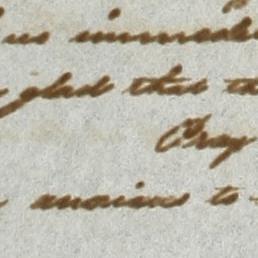 us immedi
glad that th
Pray
anxious to